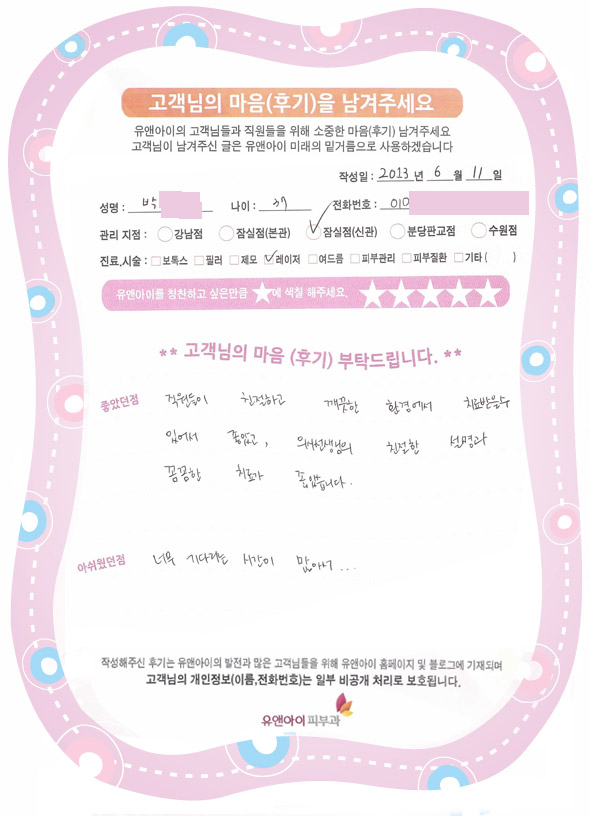 고객님의 마음(후기)을 남겨주세요
유앤아이의 고객님들과 직원들을 위해 소중한 마음(후기) 남겨주세요
고객님이 남겨주신 글은 유앤아이 미래의 밑거름으로 사용하겠습니다
작성일 : 2013 년 6 월 11 일
성명 : 박 나이 : 37 전화번호 : 010
관리 지점 : 강남점 잠실점(본관) 잠실점(신관) 분당판교점 수원점
진료,시술 : 보톡스 필러 제모 레이저 여드름 피부관리 피부질환 기타 ( )
유앤아이를 칭찬하고 싶은만큼 ★에 색칠 해주세요. ★★★★★
** 고객님의 마음 (후기) 부탁드립니다. **
좋았던점 직원들이 친절하고 깨끗한 환경에서 치료받을수
있어서 좋았고, 의사선생님의 친절한 설명과
꼼꼼한 치료가 좋았습니다.
아쉬웠던점 너무 기다리는 시간이 많아서 ...
작성해주신 후기는 유앤아이의 발전과 많은 고객님들을 위해 유앤아이 홈페이지 및 블로그에 기재되며
고객님의 개인정보(이름,전화번호)는 일부 비공개 처리로 보호됩니다.
유앤아이 피부과